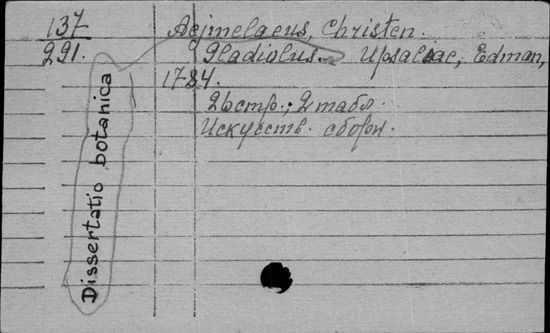 137
291.
Aejmelaeus, Christen.
Gladiolus. Upsaliae, Edman,
1784.
26стр.; 2 табл.
Искусств. сборн.
Dissertatio botanica